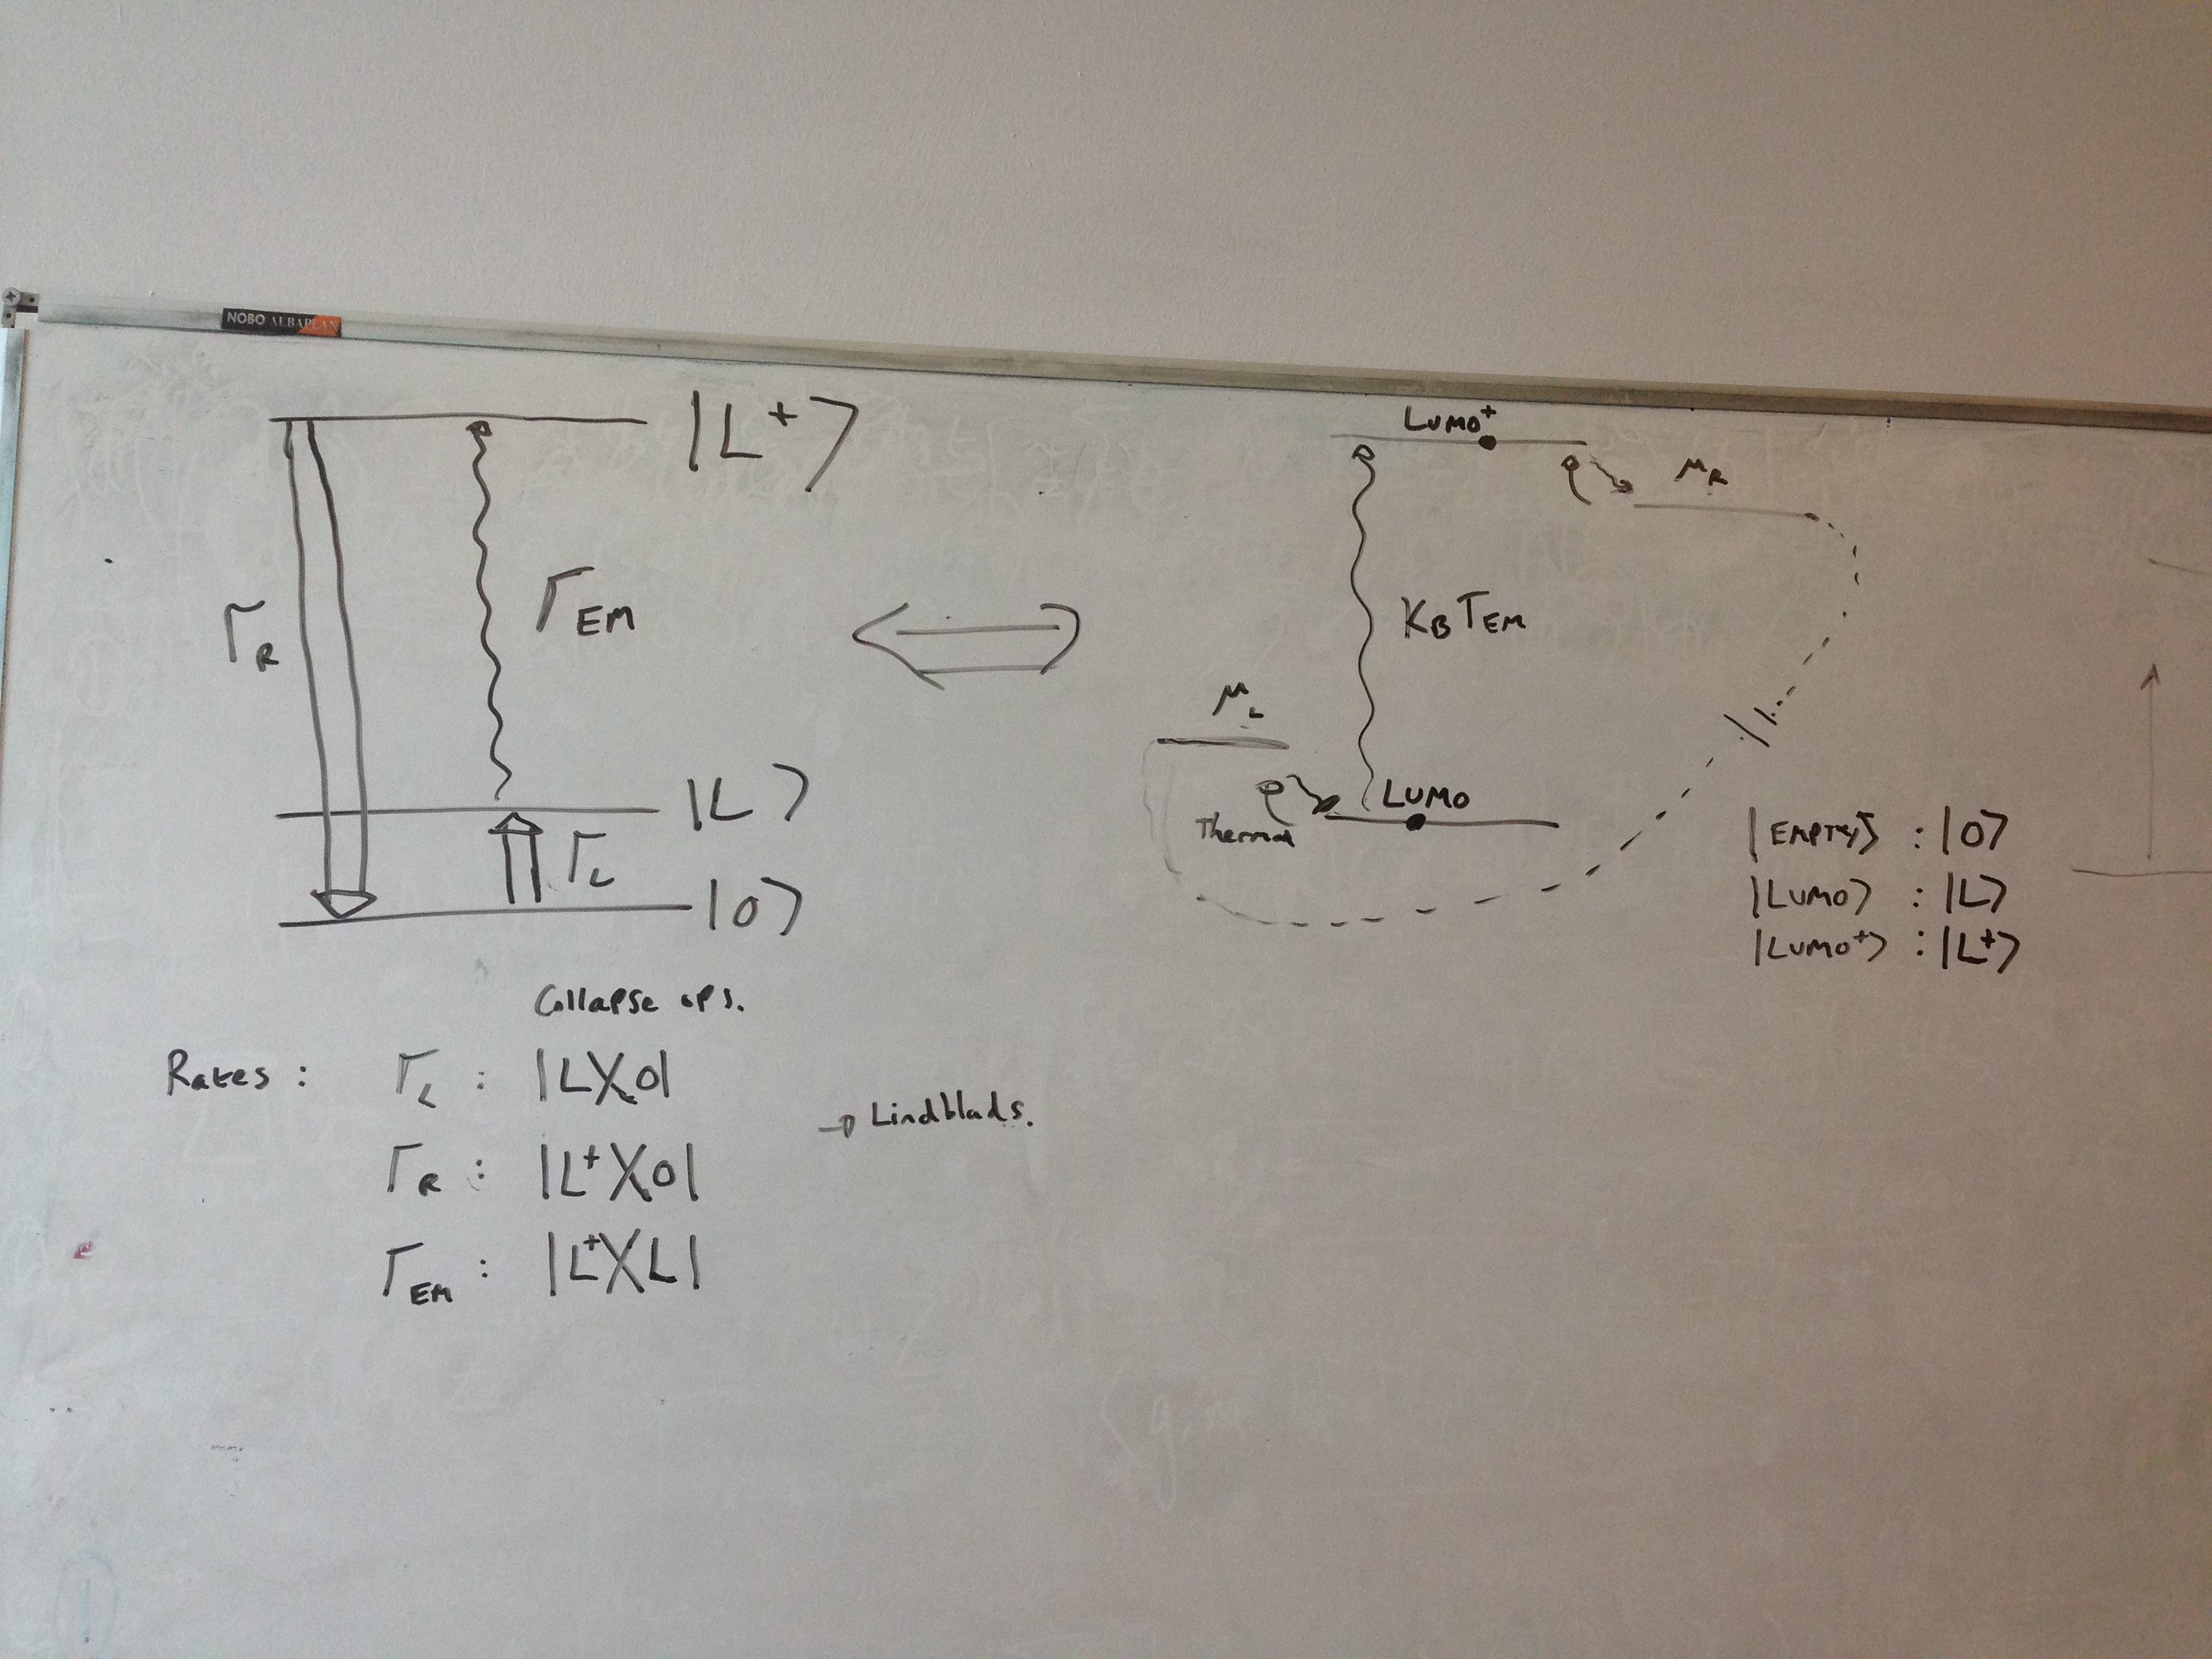 NOBO ALBAPLAN
|L⁺⟩
Γ_R
Γ_EM
|L⟩
Γ_L
|0⟩
LUMO⁺
μ_R
K_B T_EM
μ_L
LUMO
Thermal
|EMPTY⟩ : |0⟩
|LUMO⟩ : |L⟩
|LUMO⁺⟩ : |L⁺⟩
Collapse ops.
Rates : Γ_L : |L⟩⟨0|
→ Lindblads.
Γ_R : |L⁺⟩⟨0|
Γ_EM : |L⁺⟩⟨L|